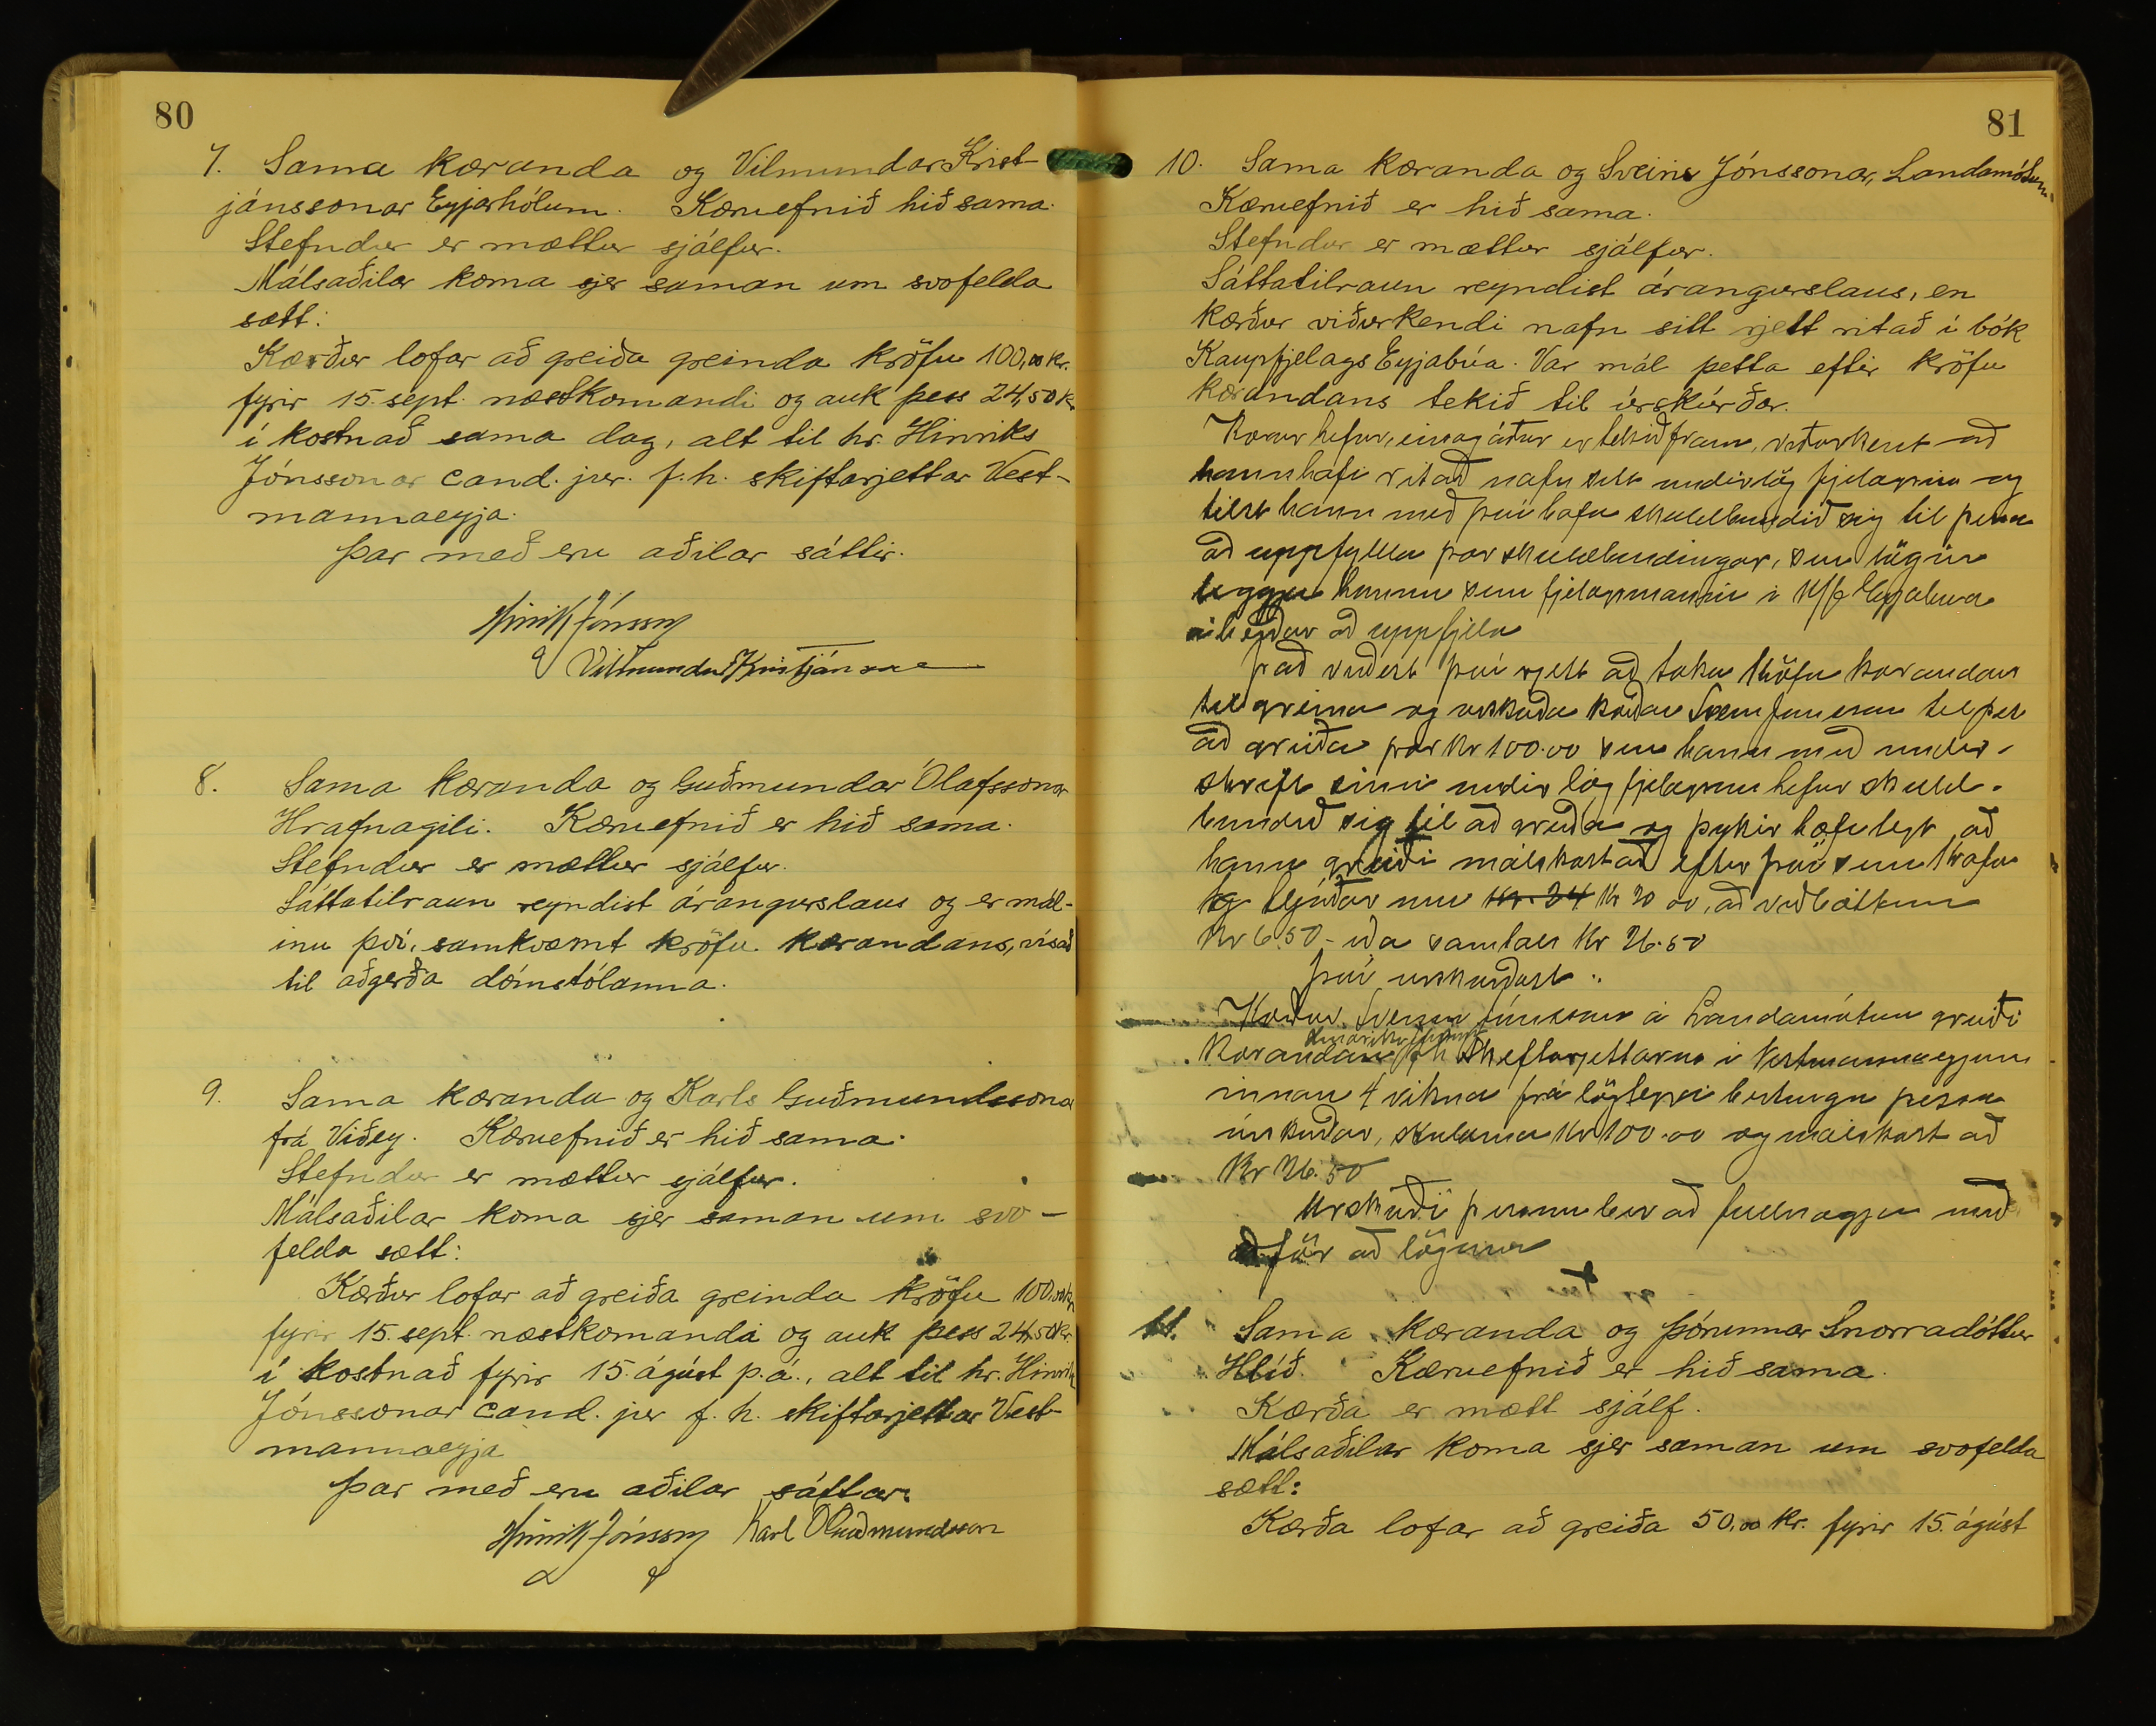 80
7. Sama kæranda og Vilmundar Krist-
jánssonar Eyjarhólum. Kæruefnið hið sama.
Stefndur er mættur sjálfur.
Málsaðilar koma sjer saman um svofelda
sætt:
Kærður lofar að greiða greinda kröfu 100,00 kr.
fyrir 15. sept. næstkomandi og auk þess 24,50 kr
í kostnað sama dag, alt til hr. Hinriks
Jónssonar cand. jur. f. h. skiftarjettar Vest-
mannaeyja.
Þar með eru aðilar sáttir.
Hinrik Jónsson
Vilmundur Kristjánsson
8. Sama kæranda og Guðmundar Ólafssonar
Hrafnagili. Kæruefnið er hið sama.
Stefndur er mættur sjálfur.
Sáttatilraun reyndist árangurslaus og er mál-
inu því, samkvæmt kröfu kærandans, vísað
til aðgerða dómstólanna.
9. Sama kæranda og Karls Guðmundssonar
frá Viðey. Kæruefnið er hið sama.
Stefndur er mættur sjálfur.
Málsaðilar koma sjer saman um svo-
felda sætt:
Kærður lofar að greiða greinda kröfu 100,00 kr
fyrir 15. sept. næstkomandi og auk þess 24,50 kr.
í kostnað fyrir 15. ágúst þ. á., alt til hr. Hinriks
Jónssonar cand. jur f. h. skiftarjettar Vest-
mannaeyja
Þar með eru aðilar sáttar.
Hinrik Jónsson Karl Guðmundsson
81
10. Sama kæranda og Sveins Jónssonar, Landamótum.
Kæruefnið er hið sama.
Stefndur er mættur sjálfur.
Sáttatilraun reyndist árangurslaus, en
kærður viðurkendi nafn sitt rjett ritað í bók
Kaupfjelags Eyjabúa. Var mál þetta eftir kröfu
kærandans tekið til úrskúrðar.
Kærður hefur, eins og áður er tekið fram, viðurkent að
hann hafi ritað nafn sitt undir lög fjelagsins og
telst hann með því hafa skuldbundið sig til þess
að uppfylla þær skuldbindingar, sem lögin
leggja honum sem fjelagsmanni í K/f Eyjabúa
á herðar að uppfylla
Það virðist því rjett að taka kröfu kærandans
til greina og úrskurða kærðan Svein Jónsson til þess
að greiða þær kr 100.00 sem hann með undir-
skrift sinni undir lög fjelagsins hefur skuld-
bundið sig til að greiða og þykir hæfilegt að
hann greiði málskostnað eftir því sem krafa
hljóðar um kr. 24 kr 20 00, að viðbættum
Kr 6.50 - eða samtals kr 26.50
Því úrskurðast:
Kærður Sveinn Jónsson á Landamótum greiði
kærandanum Hinrik Jónssyni f h Skiftarjettarins í Vestmannaeyjum
innan 4 vikna frá löglegri birtingu þessa
úrskurðar, skuldina kr 100.00 og málskostnað
Kr 26.50
Úrskurði þessum ber að fullnægja með
aðför að lögum
11. Sama kæranda og Þórunnar Snorradóttur
Hlíð. Kæruefnið er hið sama.
Kærða er mætt sjálf.
Málsaðilar koma sjer saman um svofelda
sætt:
Kærða lofar að greiða 50,00 kr. fyrir 15. ágúst